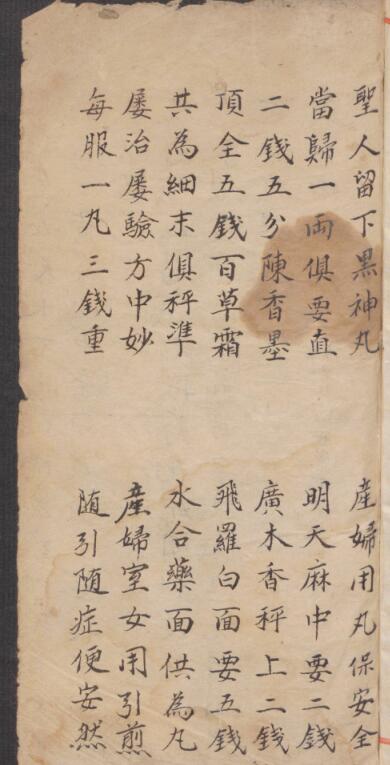 聖人留下黑神丸 產婦用丸保安全
當歸一兩俱要直 明天麻中要二錢
二錢五分陳香墨 廣木香秤上二錢
頂全五錢百草霜 飛羅白面要五錢
共為細末俱秤準 水合藥面供為丸
屢治屢驗方中妙 產婦室女用引煎
每服一丸三錢重 随引随症便安然